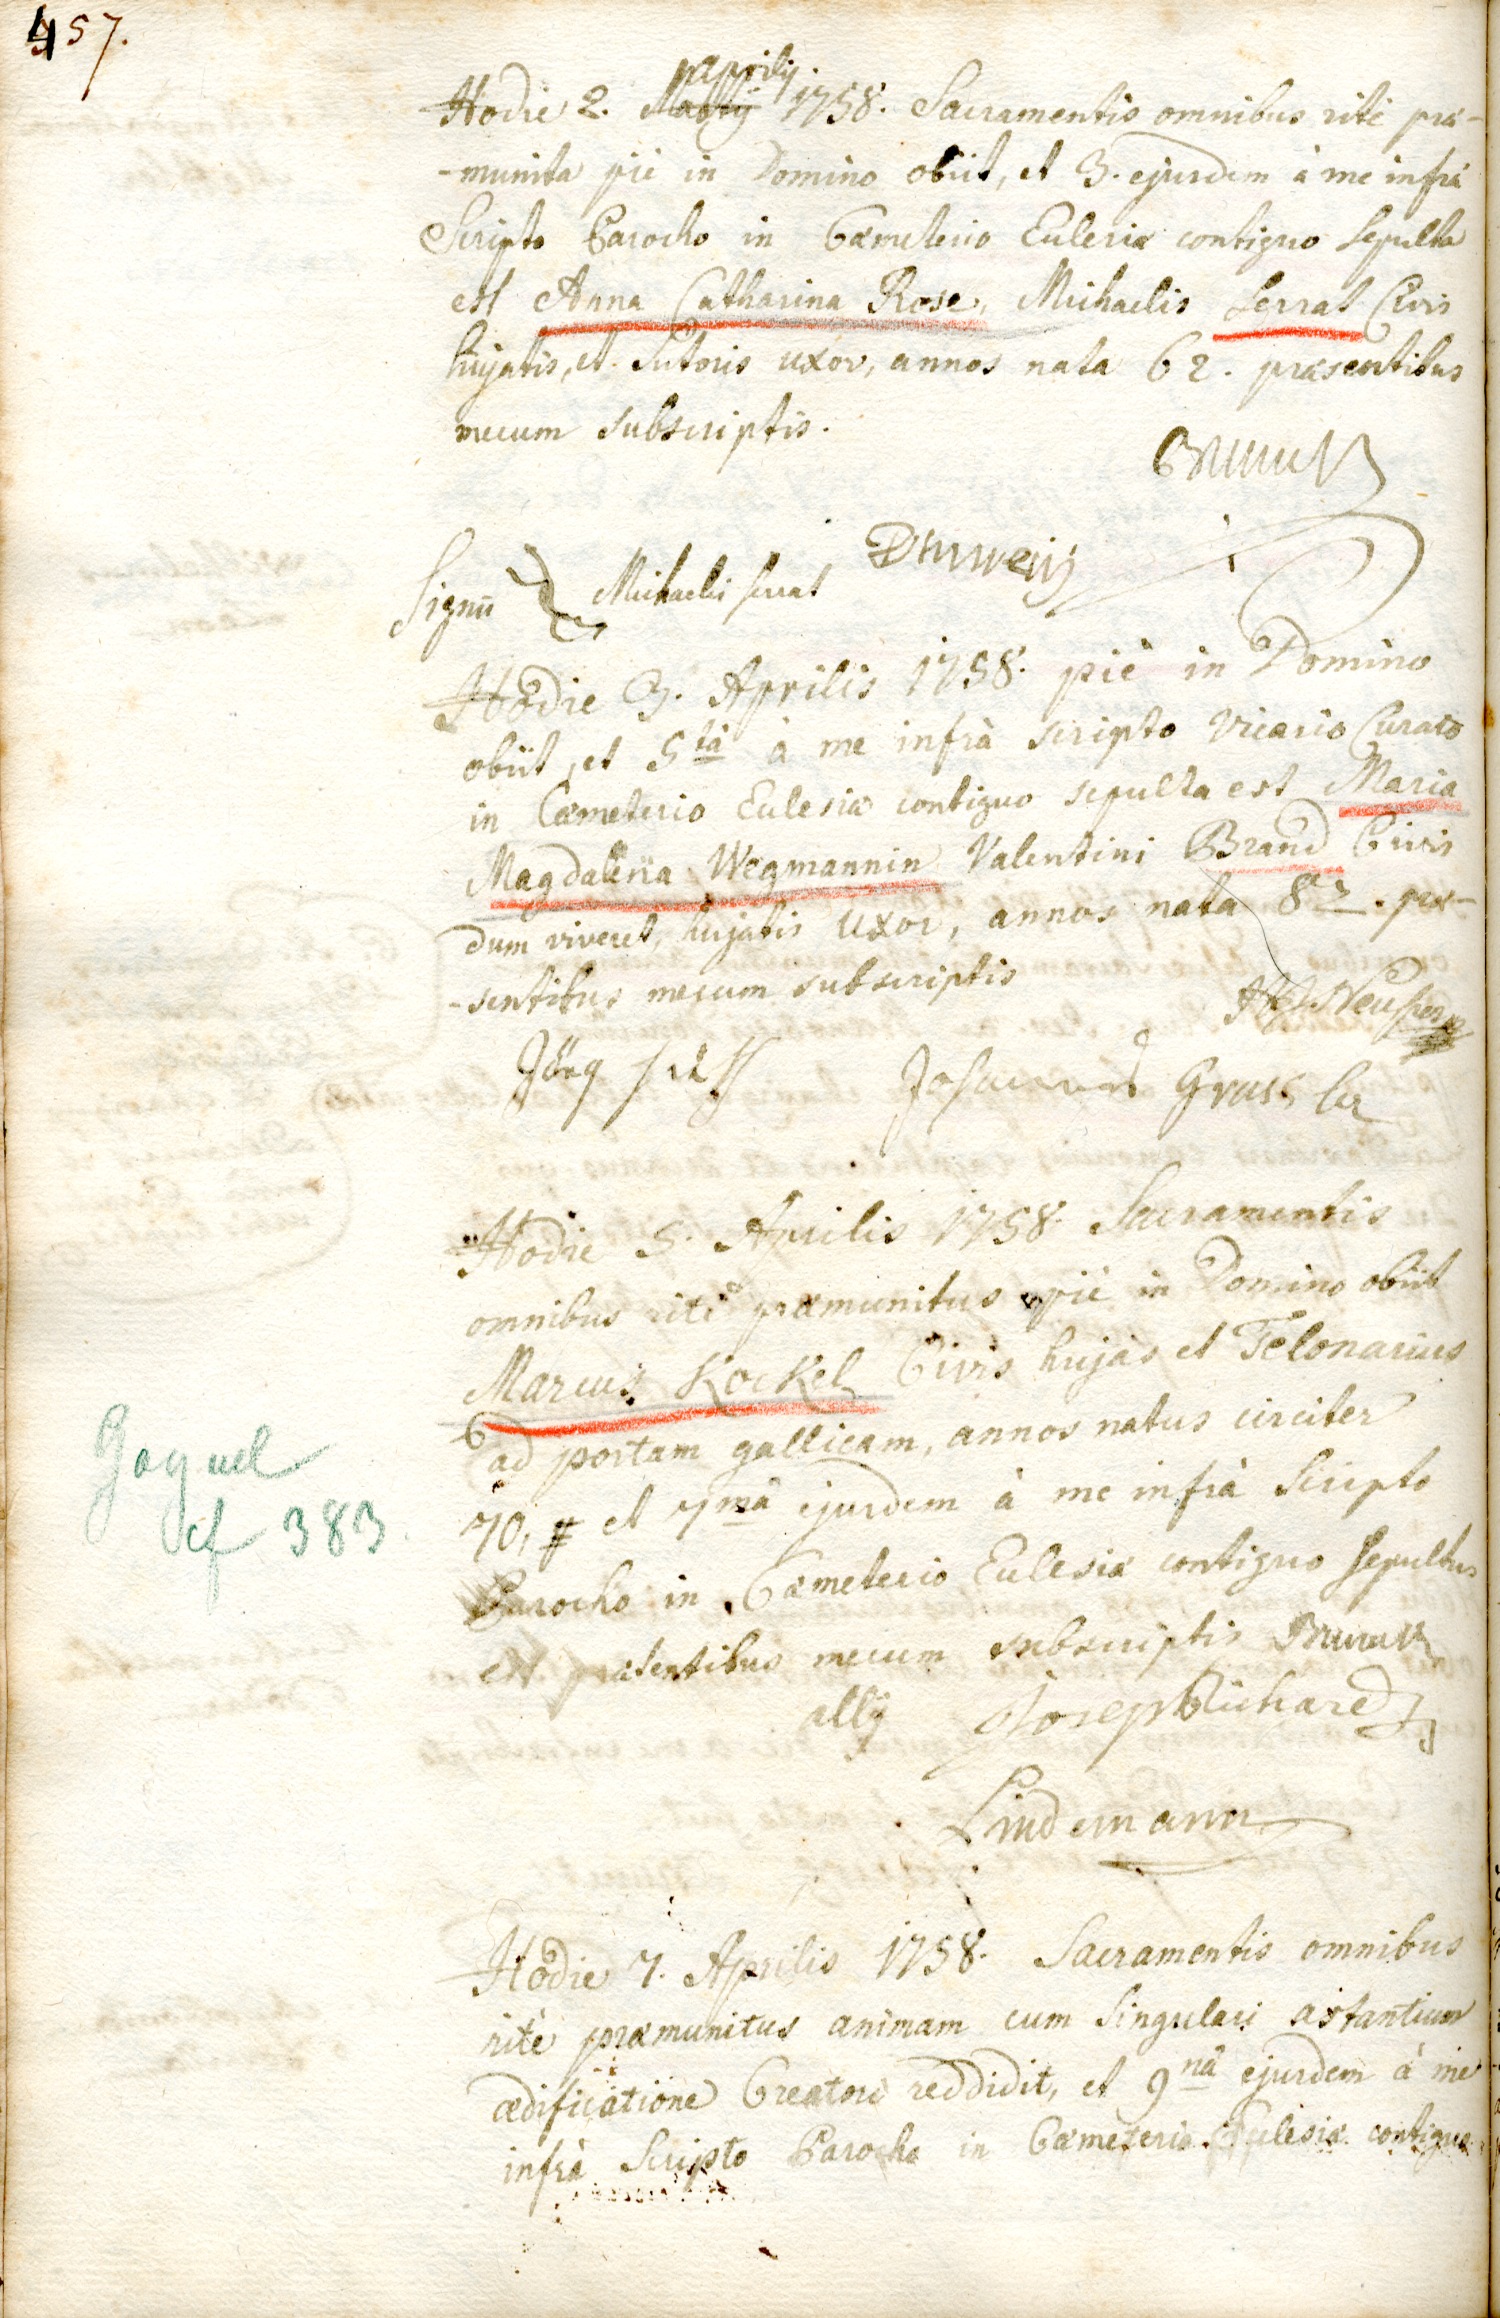 457.
aprilis
Hodie 2. Martij 1758. Sacramentis omnibus ritè præ-
-munita piè in Domino obiit, et 3. ejusdem à me infrà
Scripto Parocho in Cæmeterio Eclesiæ contiguo sepulta
est Anna Catharina Rose, Michaelis Serrat Civis
hujatis, et Sutoris uxor, annos nata 62. præsentibus
mecum subscriptis.
Signū Michaelis serrat
Hodie 3. Aprilis 1758. piè in Domino
obiit, et 5tâ à me infrà scripto Vicario Curato
in Cæmeterio Eclesiæ contiguo sepulta est Maria
Magdalena Wegmannin Valentini Brand Civis
dum viveret, hujatis uxor, annos nata 83. præ-
-sentibus mecum subscriptis
Jörg
Hodie 5. Aprilis 1758. Sacramentis
omnibus ritè præmunitus piè in Domino obiit
Marcus Kockel Civis hujas et Telonarius
ad portam gallicam, annos natus circiter
70, et 7mâ ejusdem à me infrà Scripto
Parocho in Cæmeterio Eclesiæ contiguo sepultus
est præsentibus mecum subscriptis
Joseph Richard
Lindemann
Goguel
cf 383
Hodie 7. Aprilis 1758. Sacramentis omnibus
ritè præmunitus animam cum Singulari astantium
ædificatione Creatori reddidit, et 9nâ ejusdem à me
infrà Scripto Parocho in Cæmeterio Eclesiæ contiguo